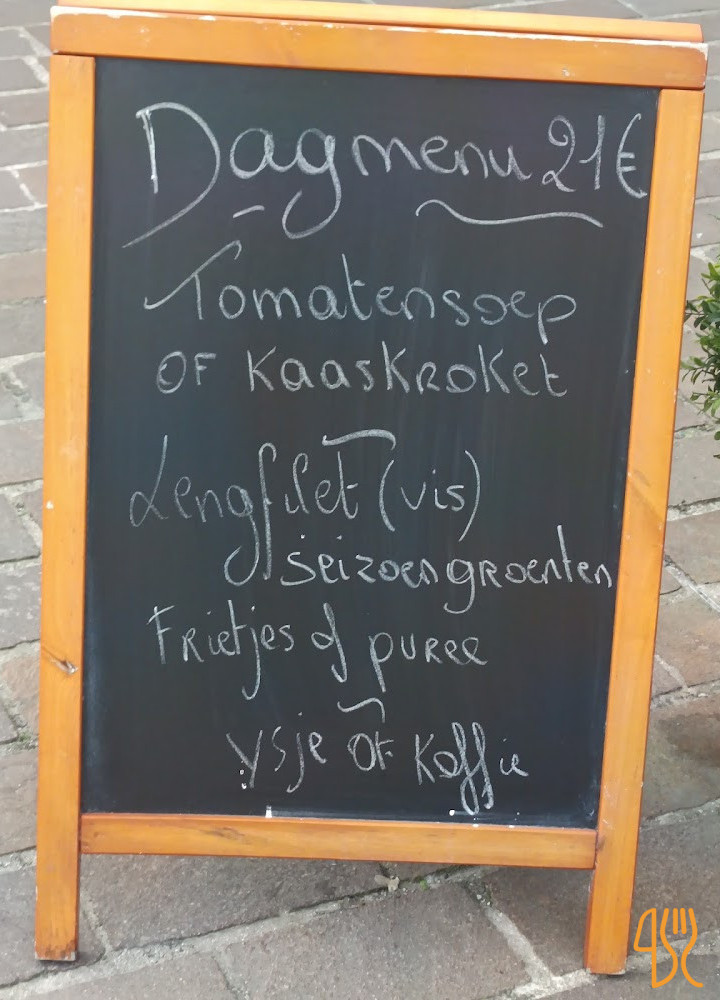 Dagmenu 21€
Tomatensoep
OF KaasKRoKet
Lengfilet (vis)
seizoengroenten
FRietjes of puRee
ysje OF Koffie